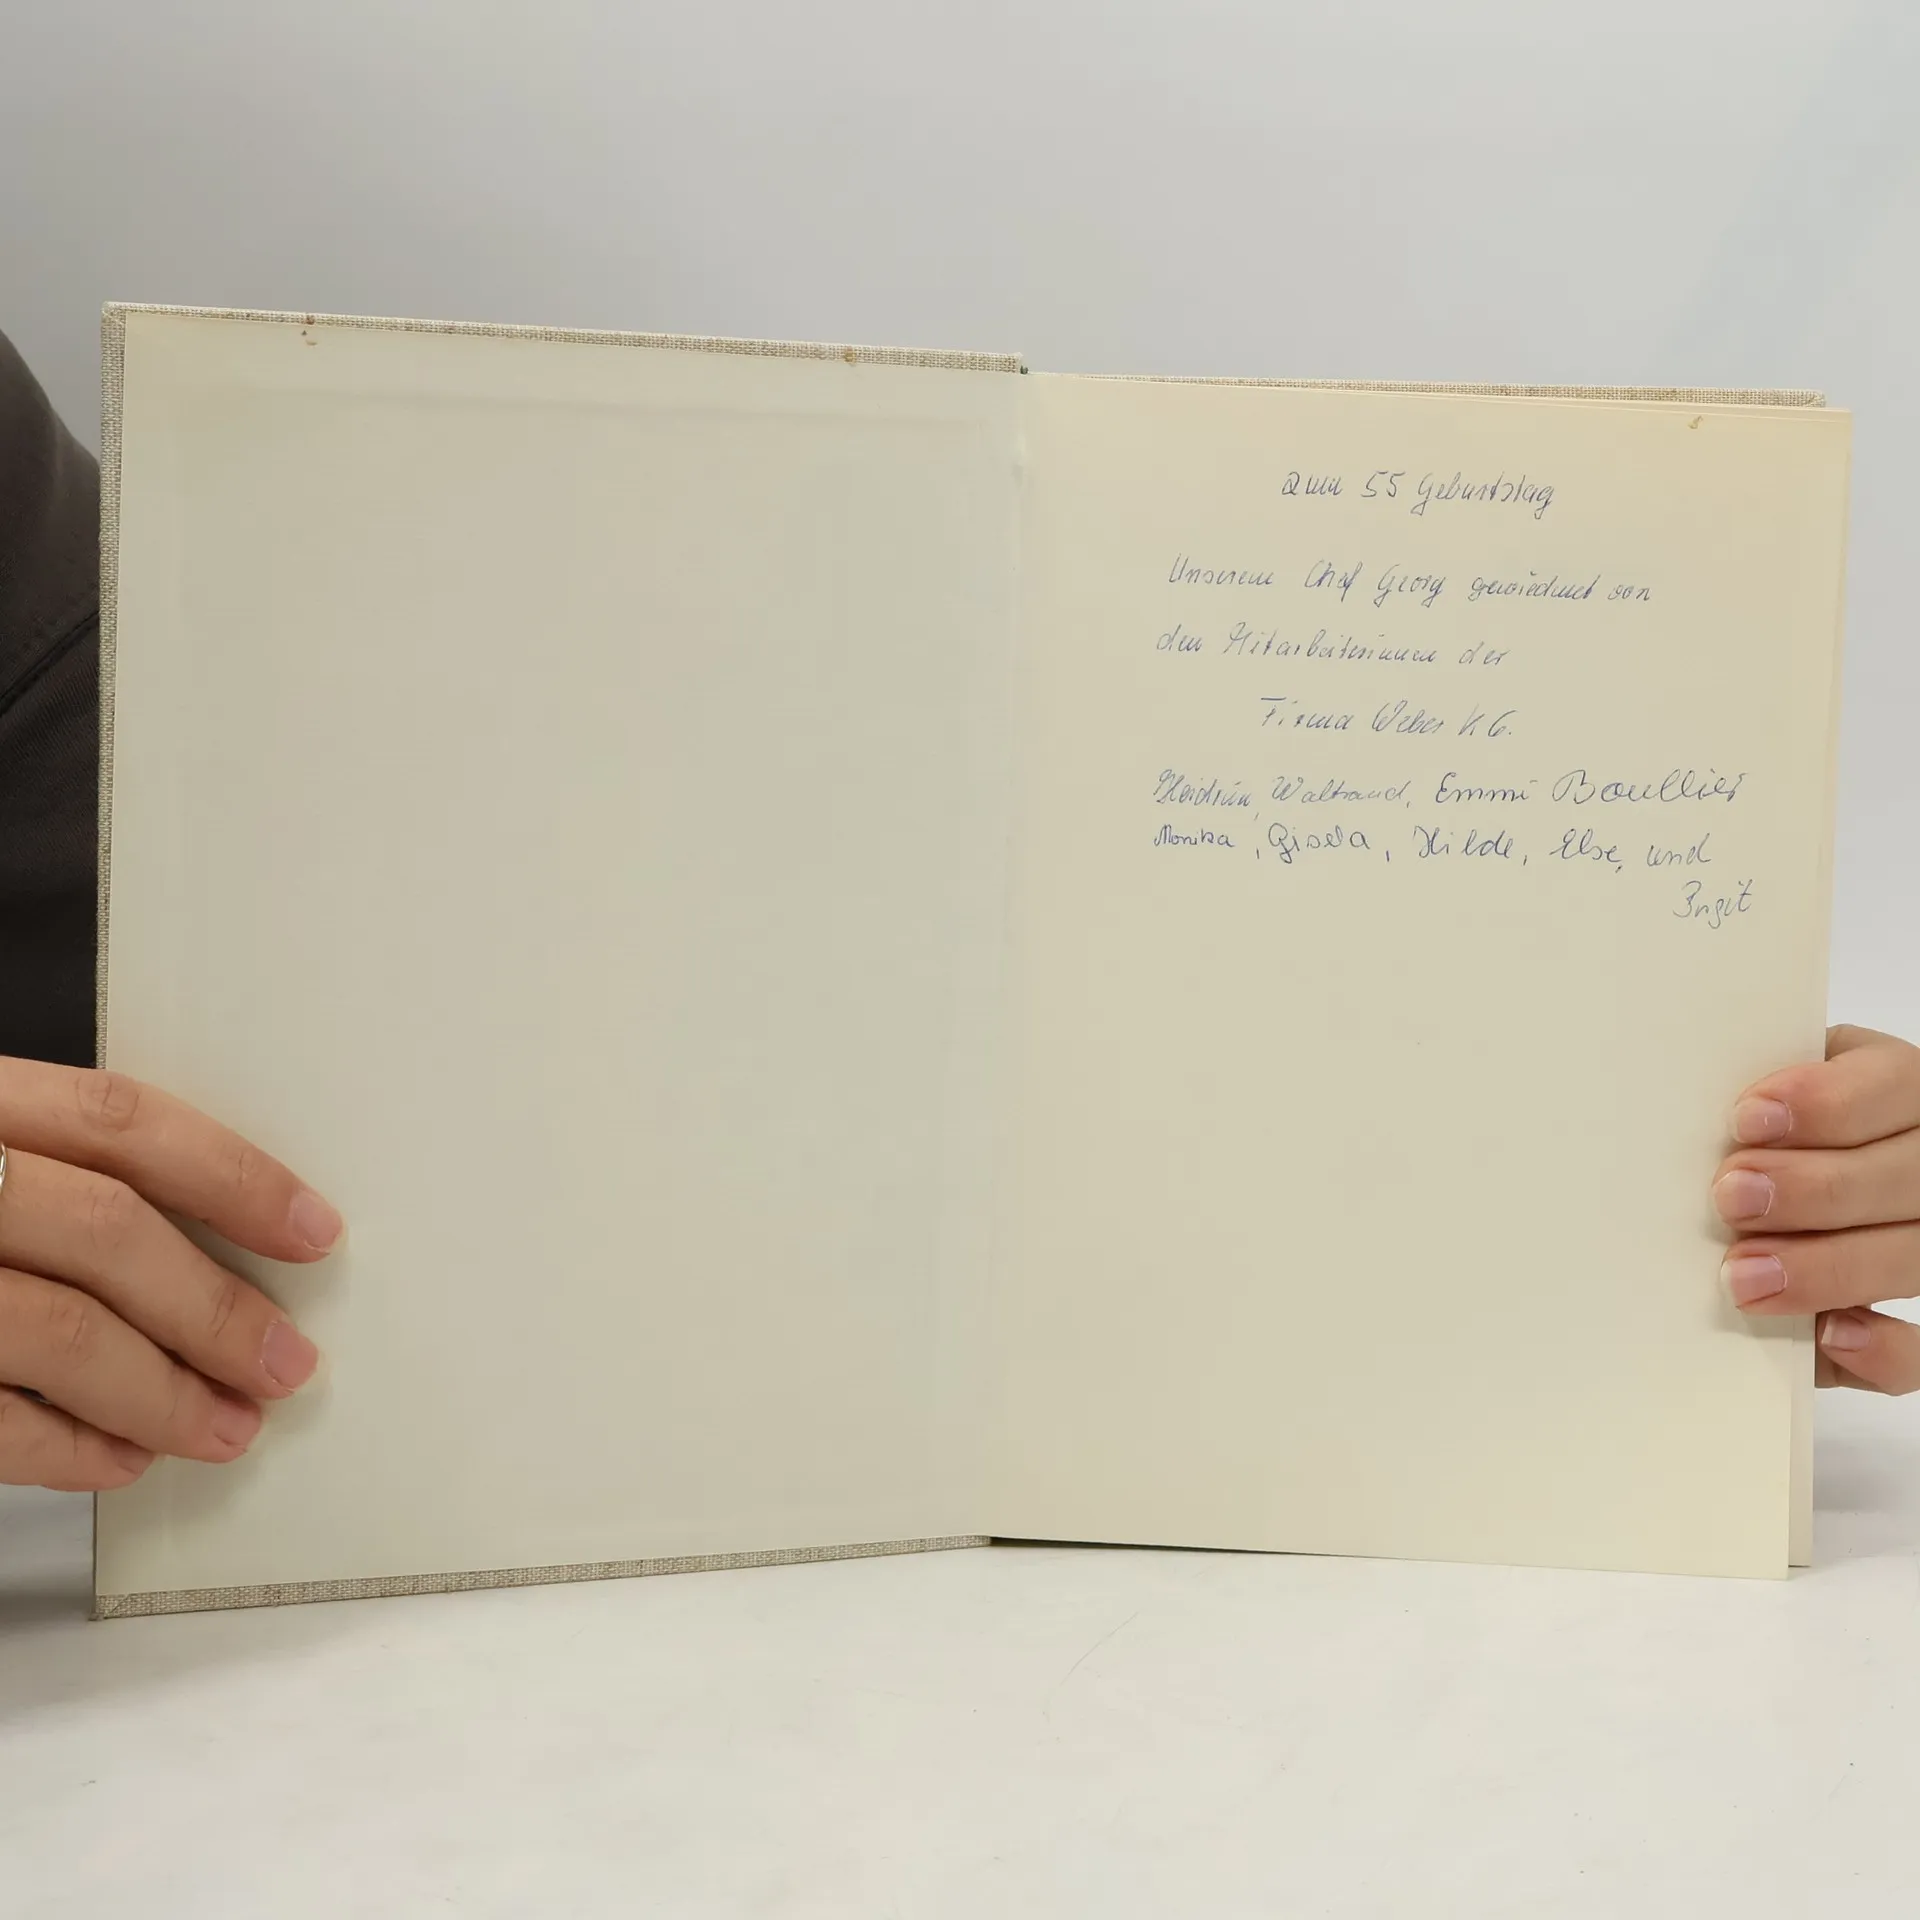 zum 55 Geburtstag
Unserem Chef Georg gewidmet von
den Mitarbeiterinnen der
Firma Weber KG.
Heidrun, Waltraud, Emmi Boullier
Monika, Gisela, Hilde, Else, und
Birgit